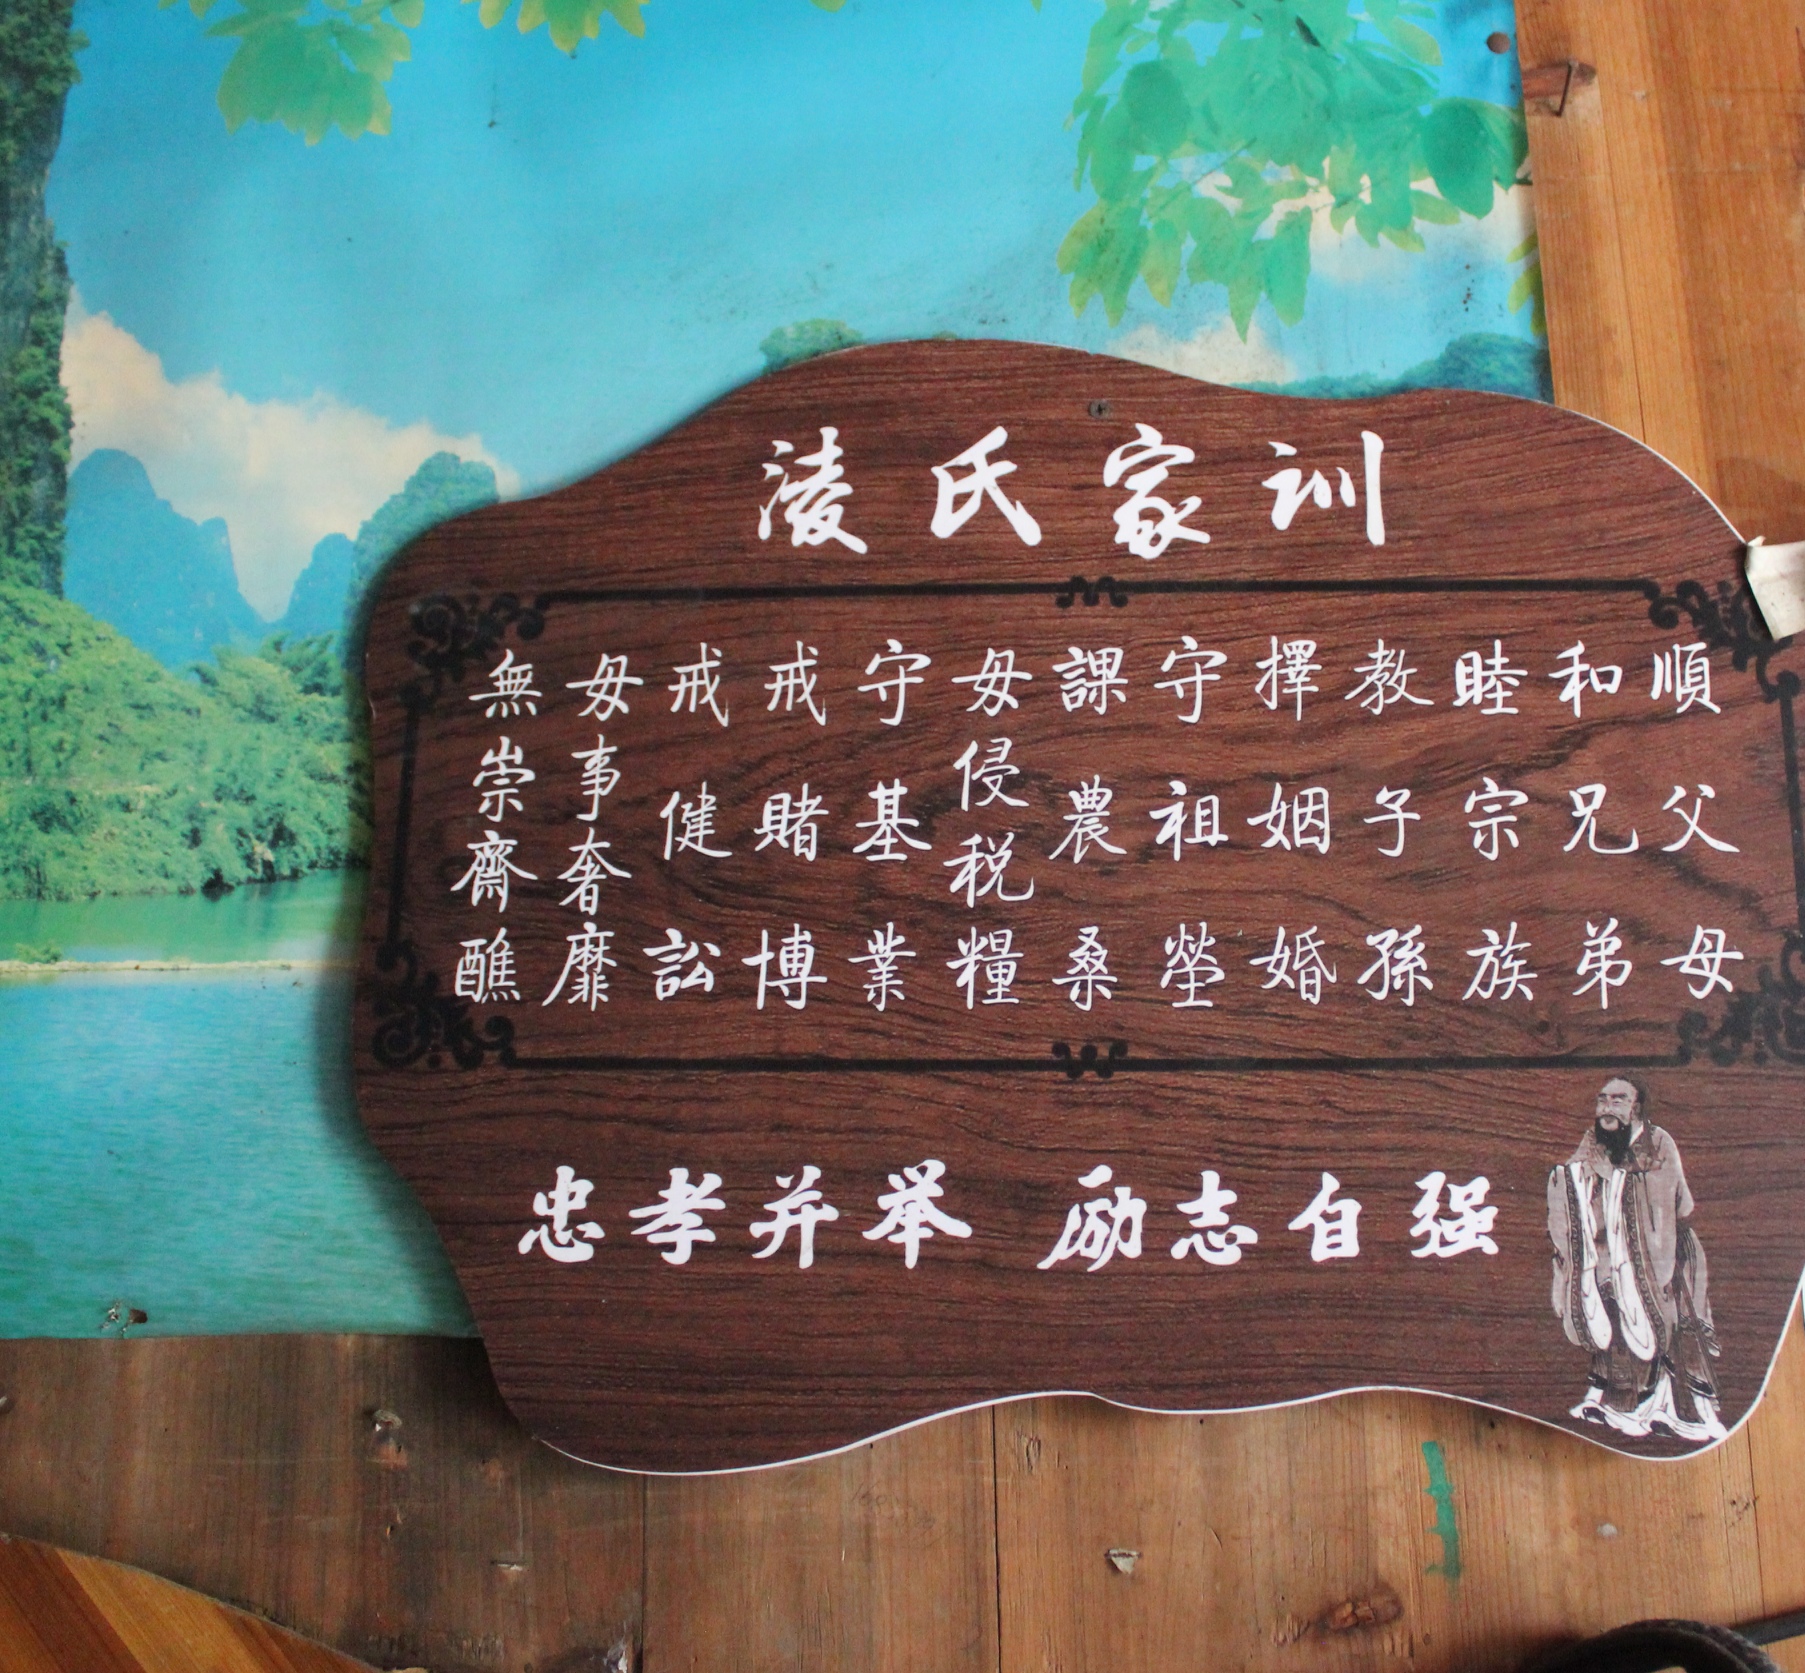 淩氏家训
順父母
和兄弟
睦宗族
教子孫
擇姻婚
守祖塋
課農桑
毋侵税糧
守基業
戒賭博
戒健訟
毋事奢靡
無崇齋醮
忠孝并举 励志自强